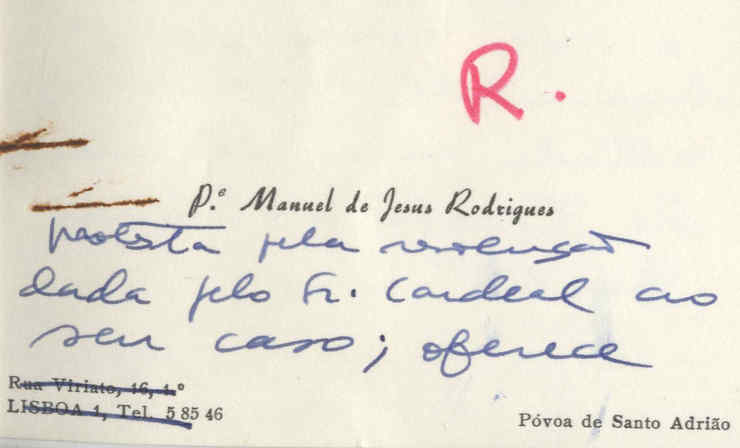 R.
P.e Manuel de Jesus Rodrigues
protesta pela resolução
dada pelo Sr. Cardeal ao
seu caso; oferece
Rua Viriato, 16, 1.º
LISBOA 1, Tel. 5 85 46
Póvoa de Santo Adrião